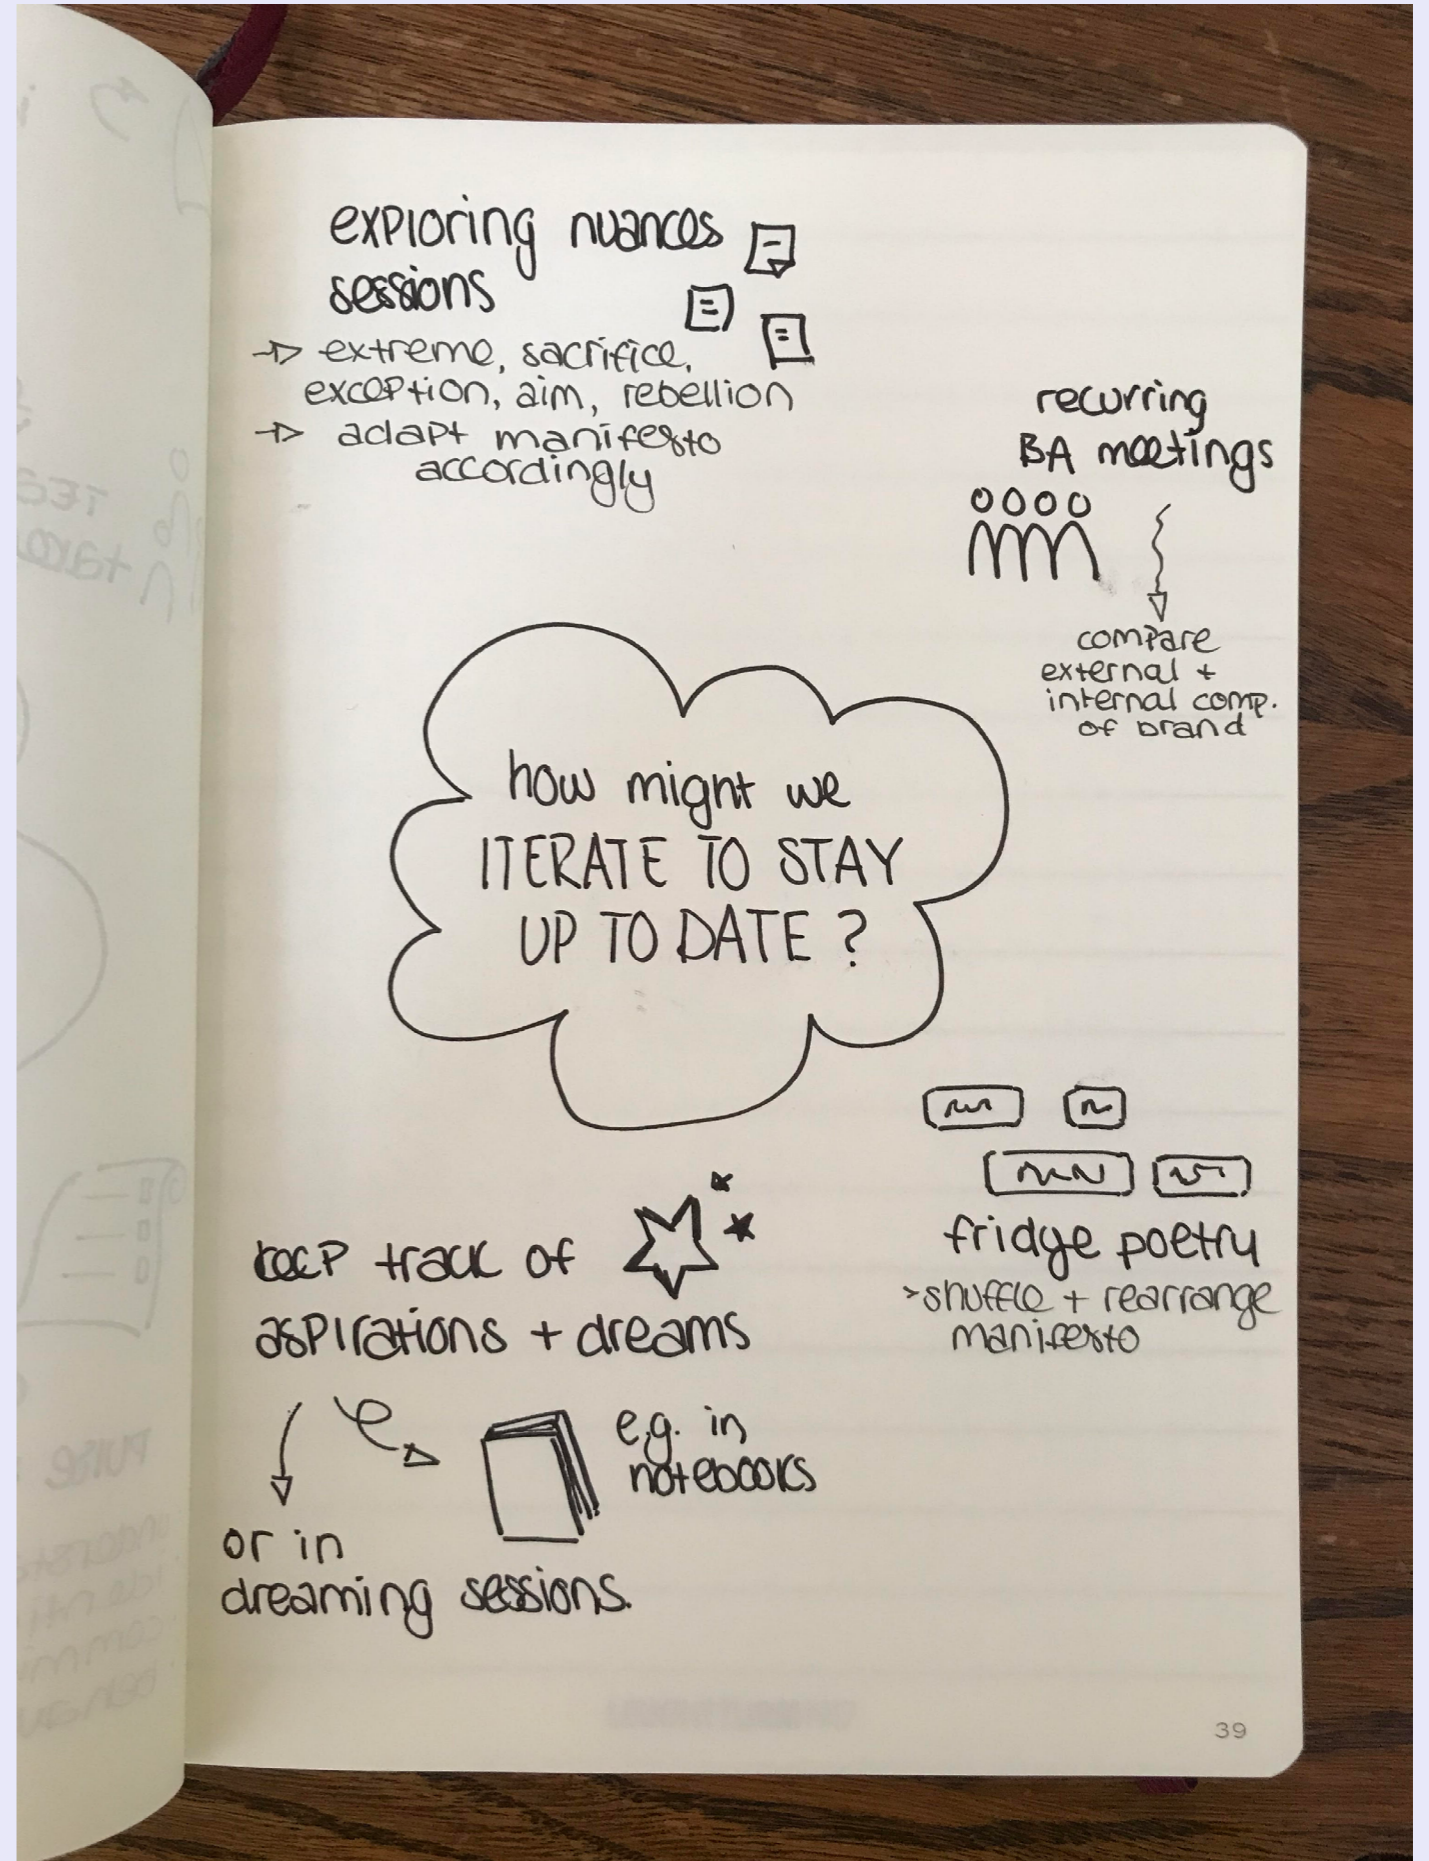 exploring nuances
sessions
extreme, sacrifice,
exception, aim, rebellion
adapt manifesto
accordingly
recurring
BA meetings
compare
external +
internal comp.
of brand
how might we
ITERATE TO STAY
UP TO DATE ?
fridge poetry
shuffle + rearrange
manifesto
keep track of
aspirations + dreams
e.g. in
notebooks
or in
dreaming sessions.
39